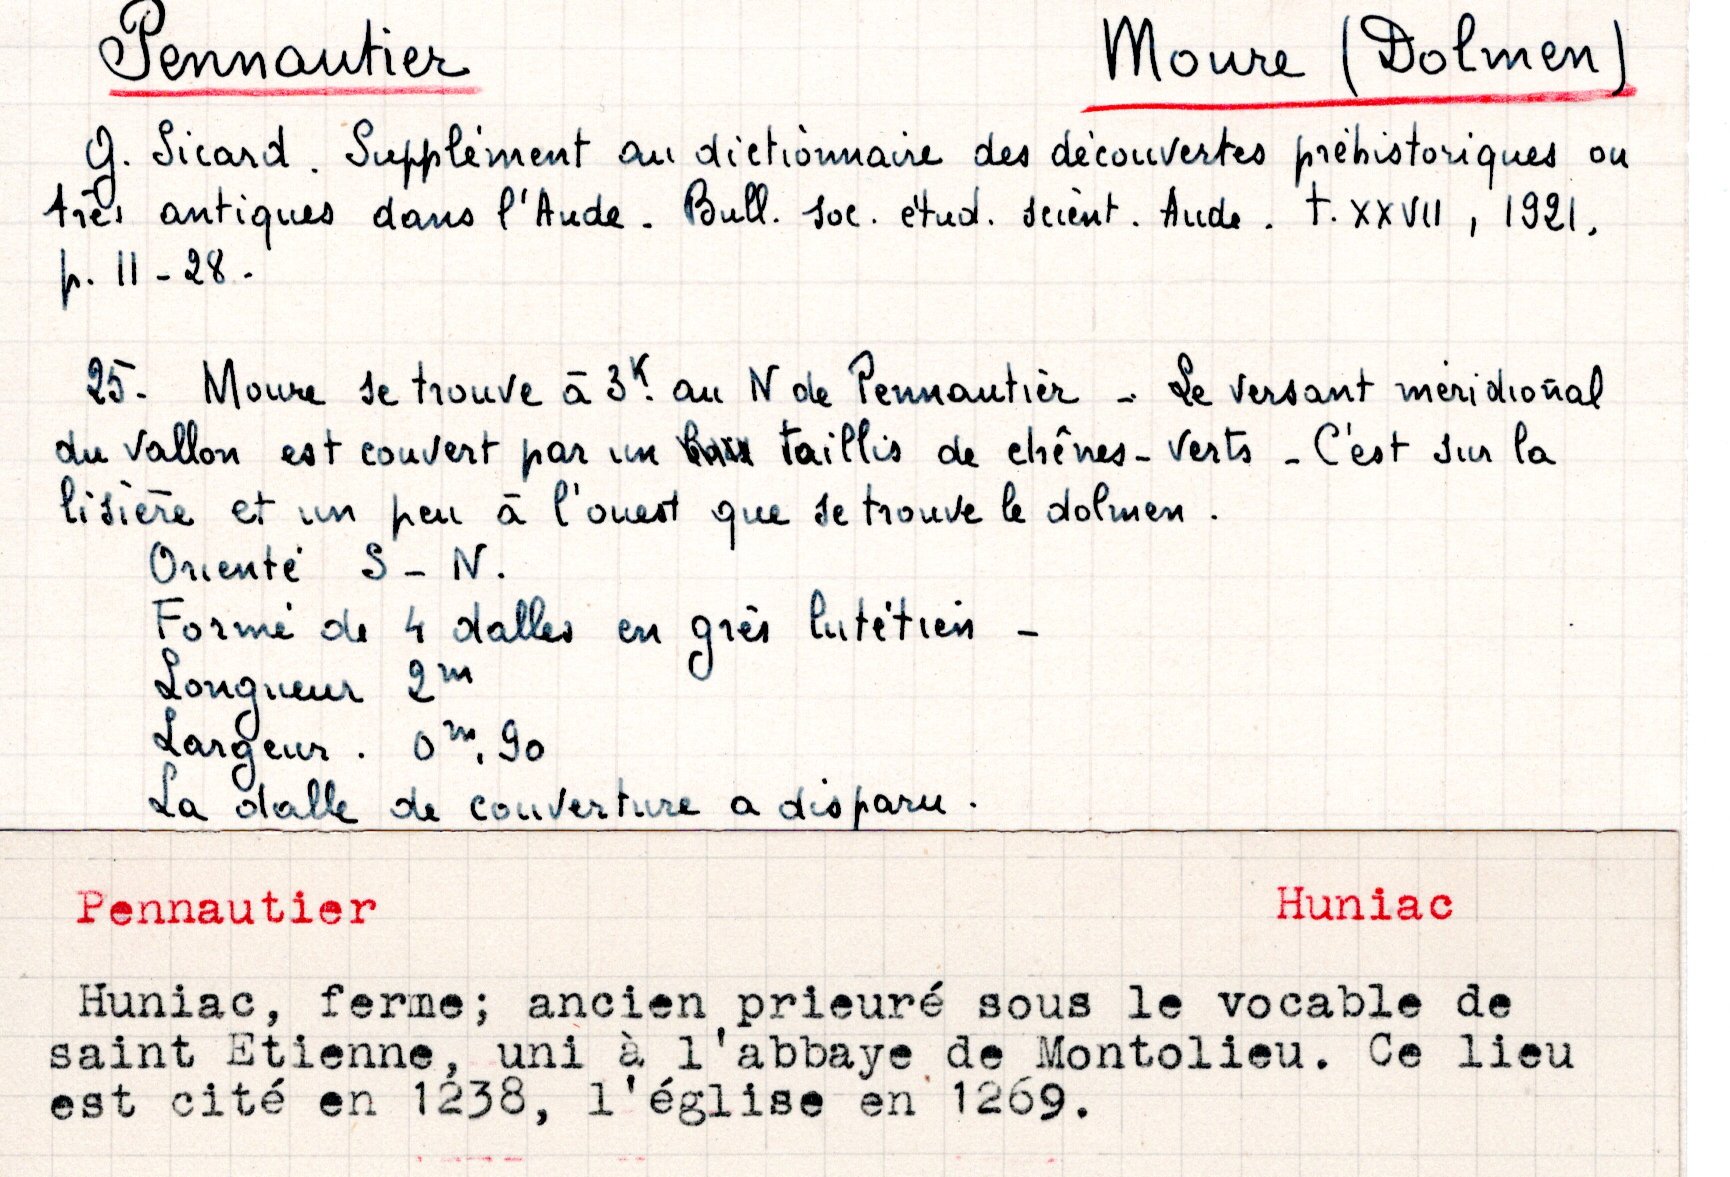 Pennautier Moure (Dolmen)
G. Sicard. Supplément au dictionnaire des découvertes préhistoriques ou
très antiques dans l'Aude. Bull. soc. étud. scient. Aude. t. XXVII, 1921,
p. 11-28.
25. Moure se trouve à 3K. au N de Pennautier - Le versant méridional
du vallon est couvert par un taillis de chênes-verts - C'est sur la
lisière et un peu à l'ouest que se trouve le dolmen.
Orienté S - N.
Formé de 4 dalles en grès lutétien -
Longueur 2m
Largeur. 0m,90
La dalle de couverture a disparu.
Pennautier Huniac
Huniac, ferme; ancien prieuré sous le vocable de
saint Etienne, uni à l'abbaye de Montolieu. Ce lieu
est cité en 1238, l'église en 1269.